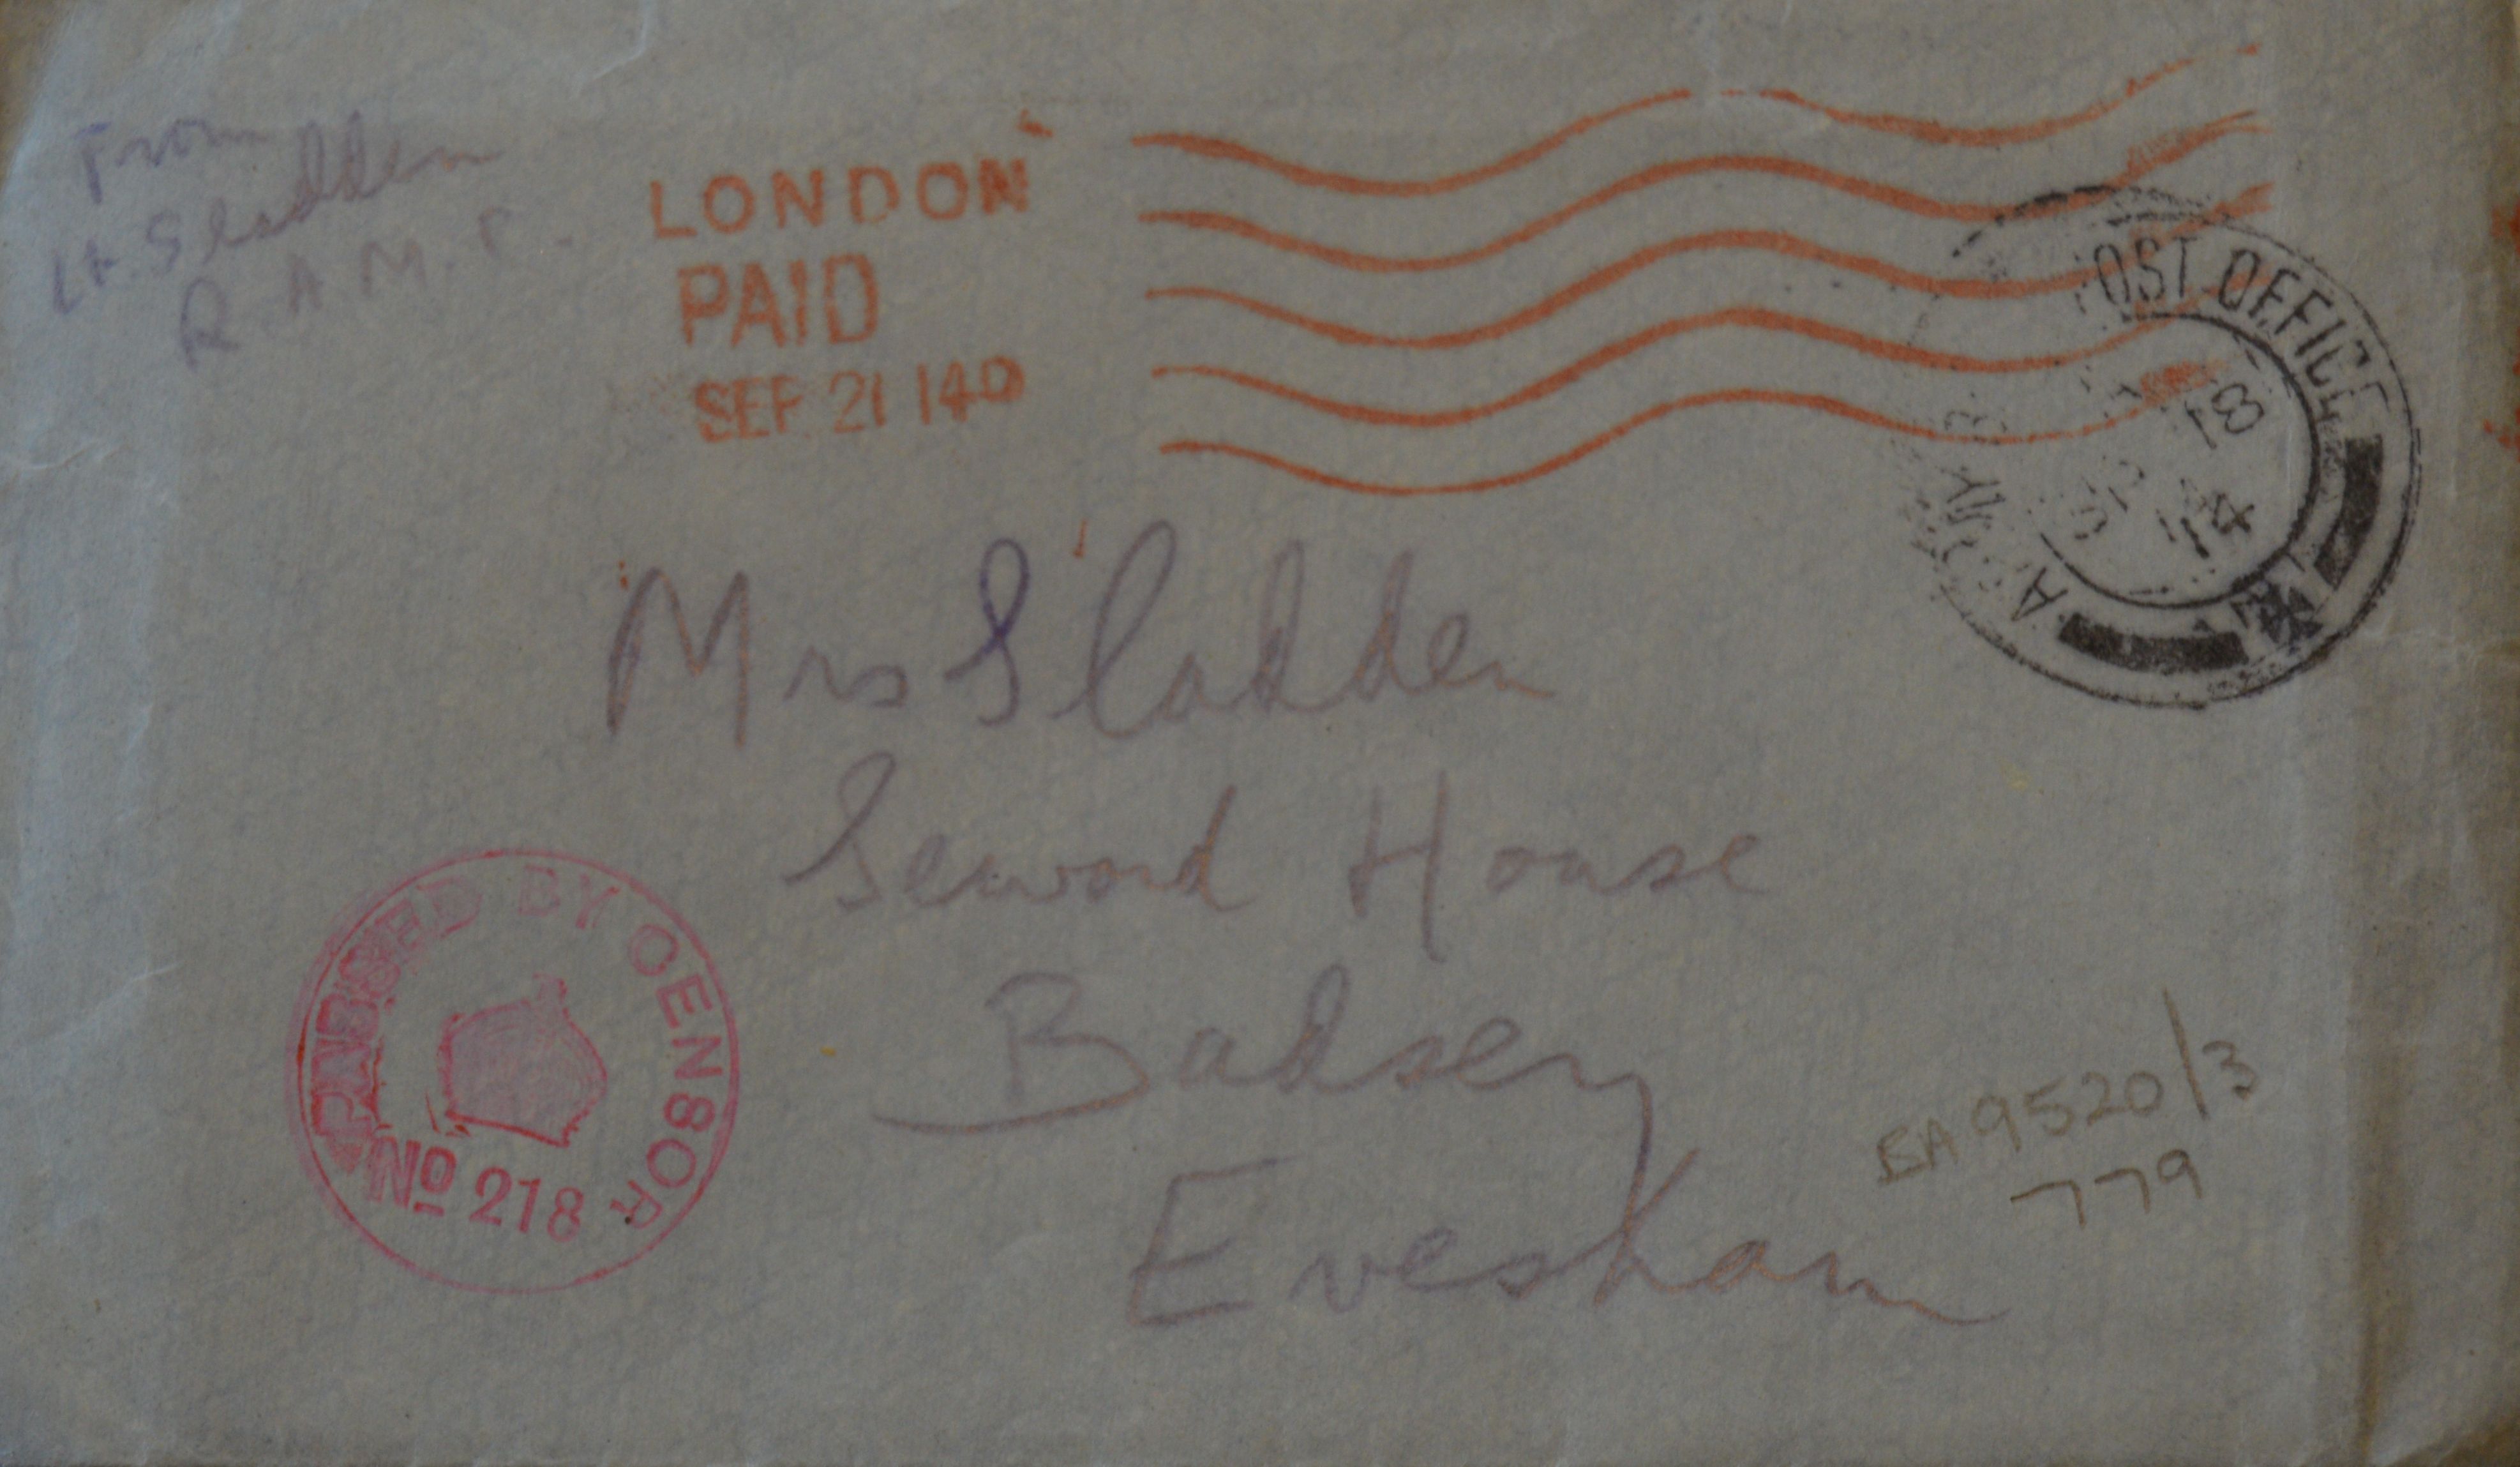 From
Lt. Sladden
R.A.M.C.
LONDON
PAID
SEP 21 14
ARMY POST OFFICE
18
SP
14
Mrs Sladden
Seward House
Badsey
Evesham
PASSED BY CENSOR
No 218
EA 9520/3
779